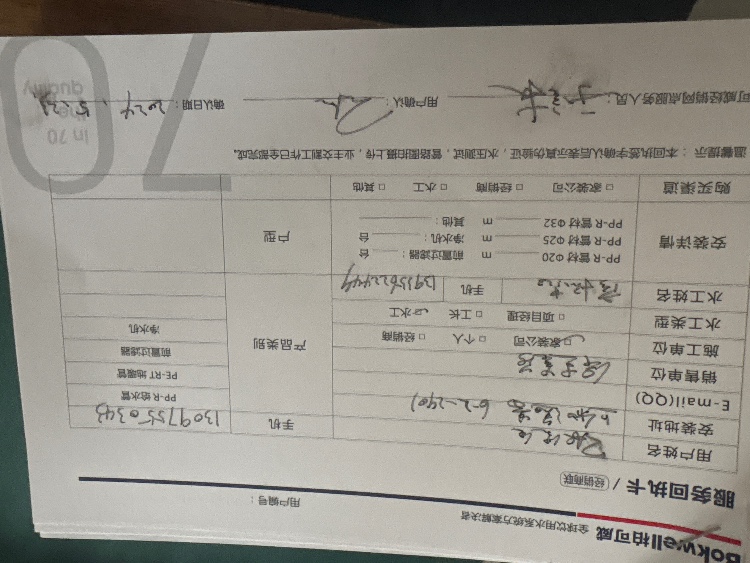 Bokwell柏可威 全球饮用水系统方案解决者
服务回执卡 / 经销商联 用户编号：
用户姓名
安装地址 6-2-2401 手机 13097550343
E-mail(QQ)
销售单位
施工单位 家装公司 □ 个人 □ 经销商
水工类型 □ 项目经理 □ 工长 水工
水工姓名 手机 13955622449
产品类别
PP-R 给水管
PE-RT 地暖管
前置过滤器
净水机
安装详情
PP-R 管材 Φ20 m 前置过滤器： 台
PP-R 管材 Φ25 m 净水机： 台
PP-R 管材 Φ32 m 其他：
户型
购买渠道 □ 家装公司 □ 经销商 □ 水工 □ 其他
温馨提示：本回执签字确认后表示真伪验证，水压测试，管路图拍摄上传，业主交割工作已全部完成。
可威经销网点服务人员： 用户确认： 确认日期：2024.5.21
70
in 70
quality